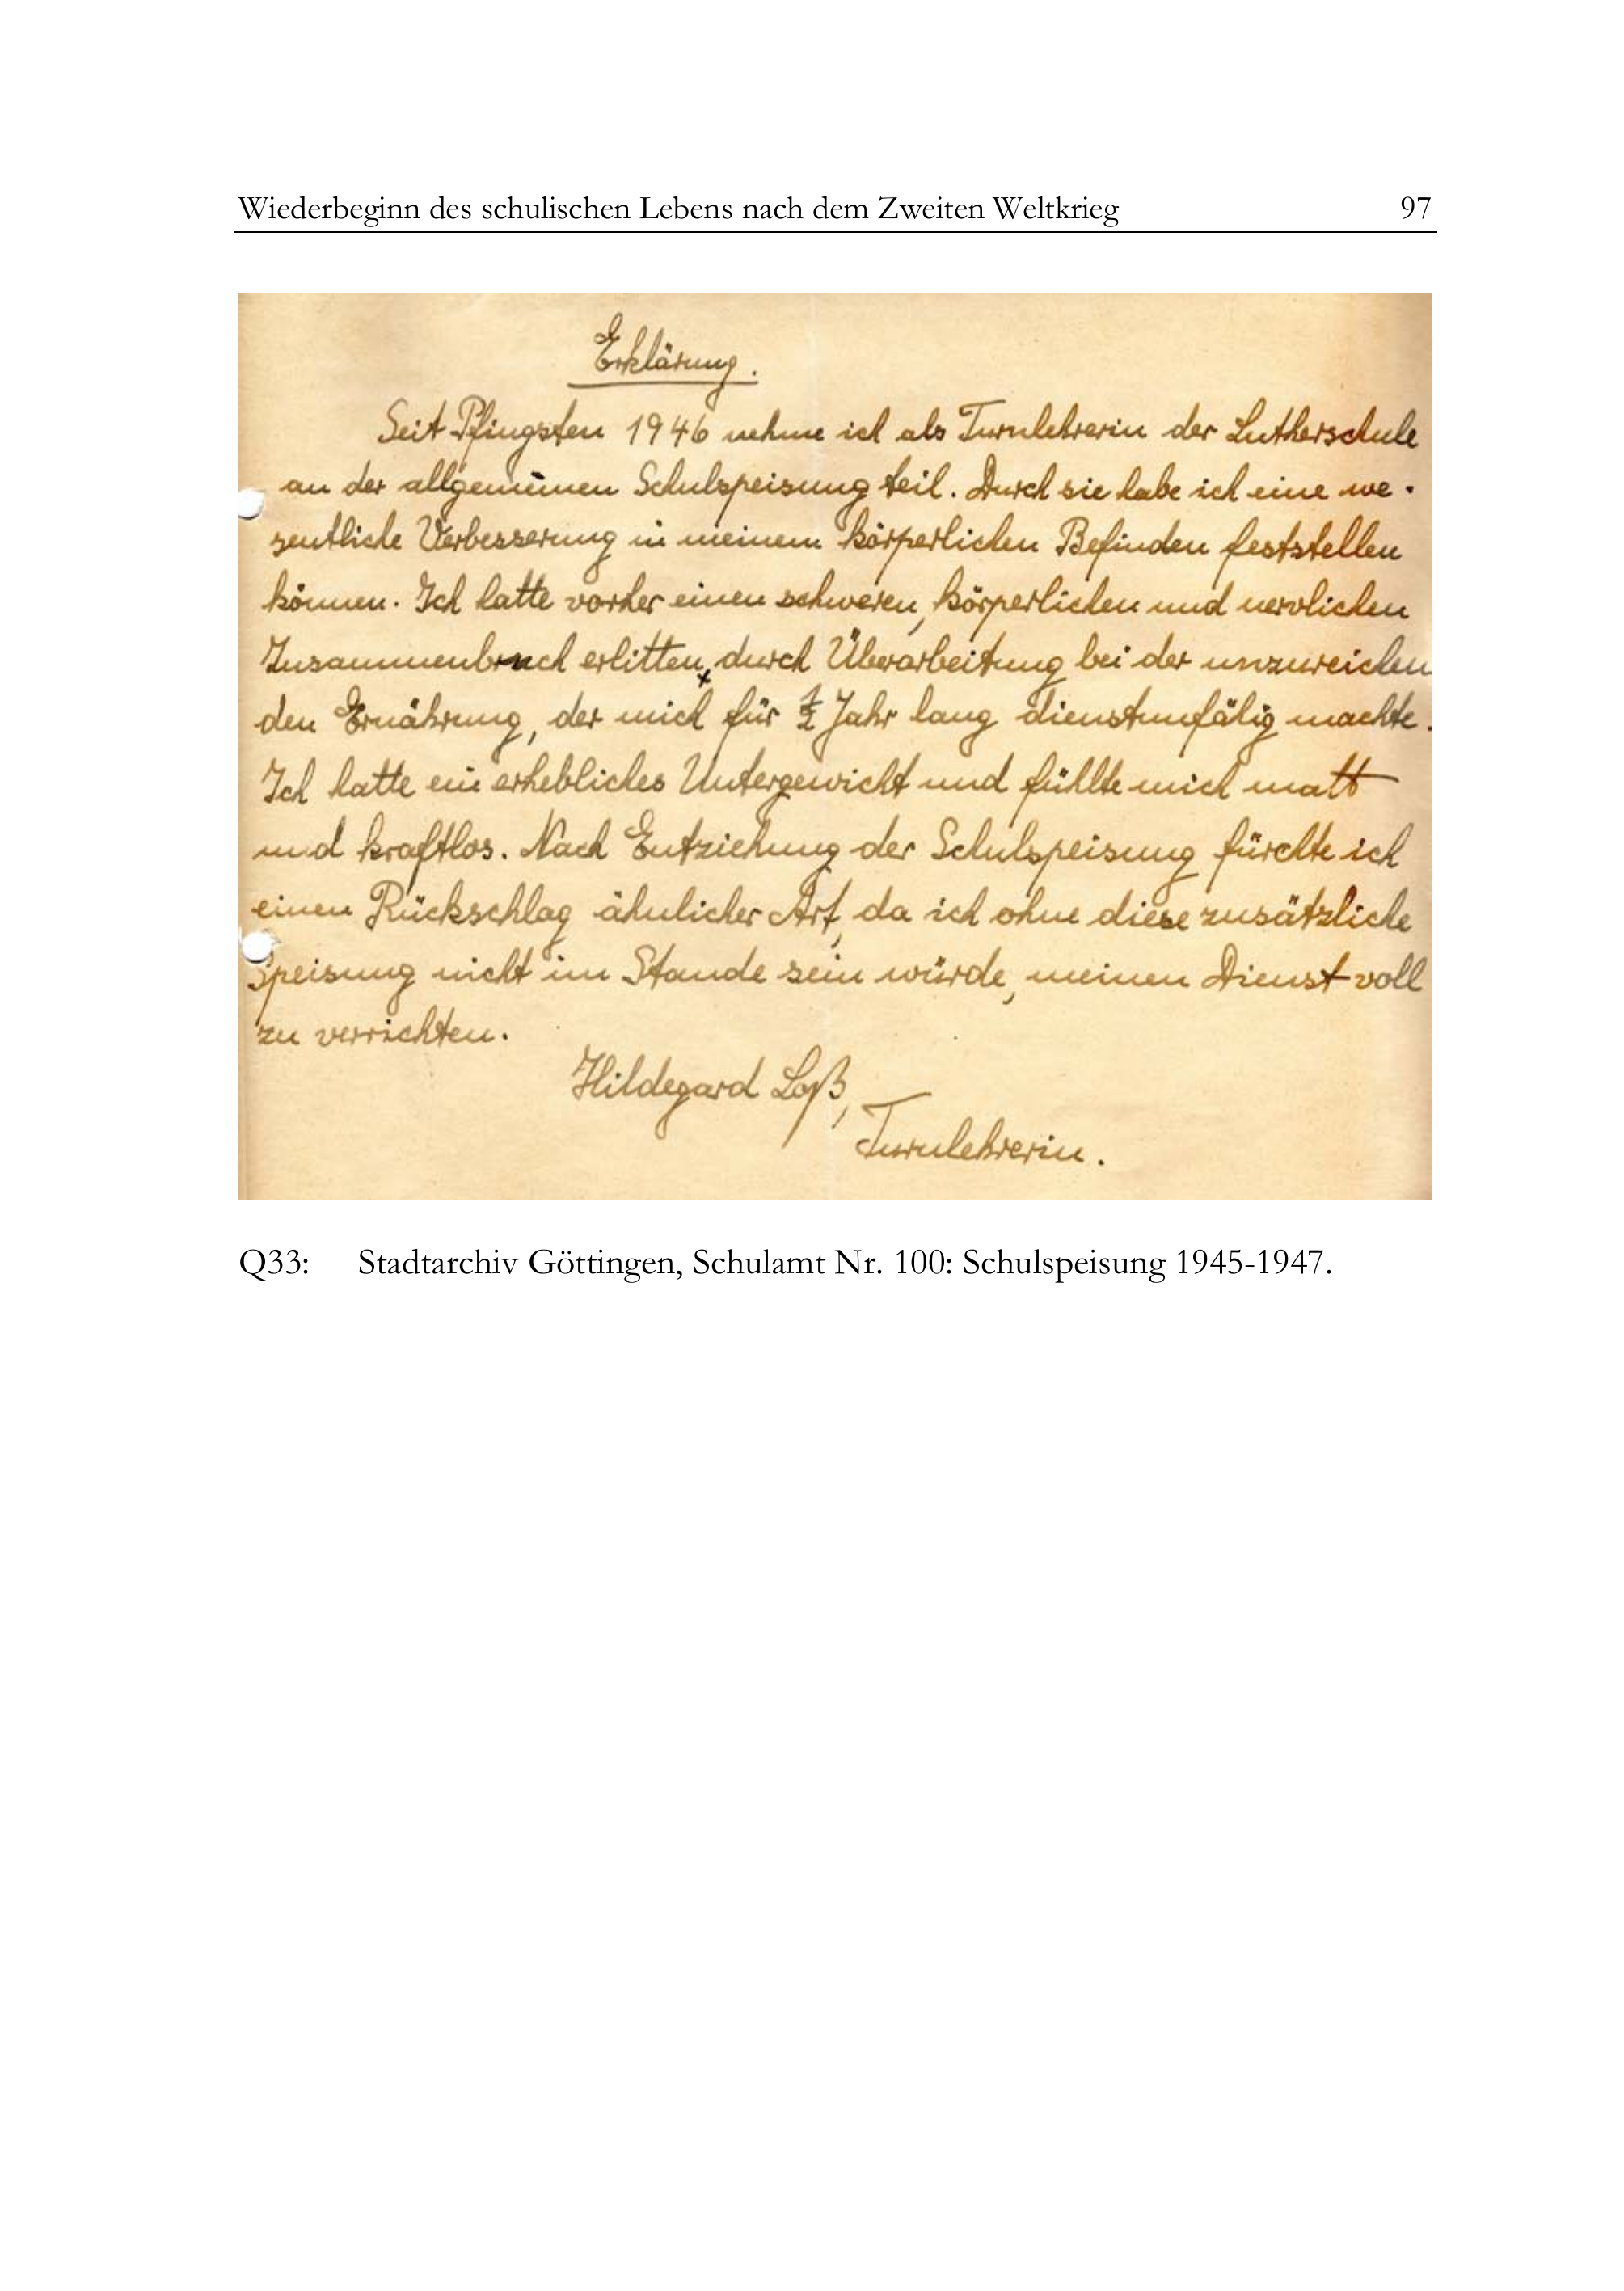 Wiederbeginn des schulischen Lebens nach dem Zweiten Weltkrieg 97
Erklärung.
Seit Pfingsten 1946 nehme ich als Turnlehrerin der Lutherschule
an der allgemeinen Schulspeisung teil. Durch sie habe ich eine we-
sentliche Verbesserung in meinem körperlichen Befinden feststellen
können. Ich hatte vorher einen schweren, körperlichen und nervlichen
Zusammenbruch erlitten, durch Überarbeitung bei der unzureichen
den Ernährung, der mich für ½ Jahr lang dienstunfähig machte.
Ich hatte ein erhebliches Untergewicht und fühlte mich matt
und kraftlos. Nach Entziehung der Schulspeisung fürchte ich
einen Rückschlag ähnlicher Art, da ich ohne diese zusätzliche
Speisung nicht im Stande sein würde, meinen Dienst voll
zu verrichten.
Hildegard Loß,
Turnlehrerin.
Q33: Stadtarchiv Göttingen, Schulamt Nr. 100: Schulspeisung 1945-1947.